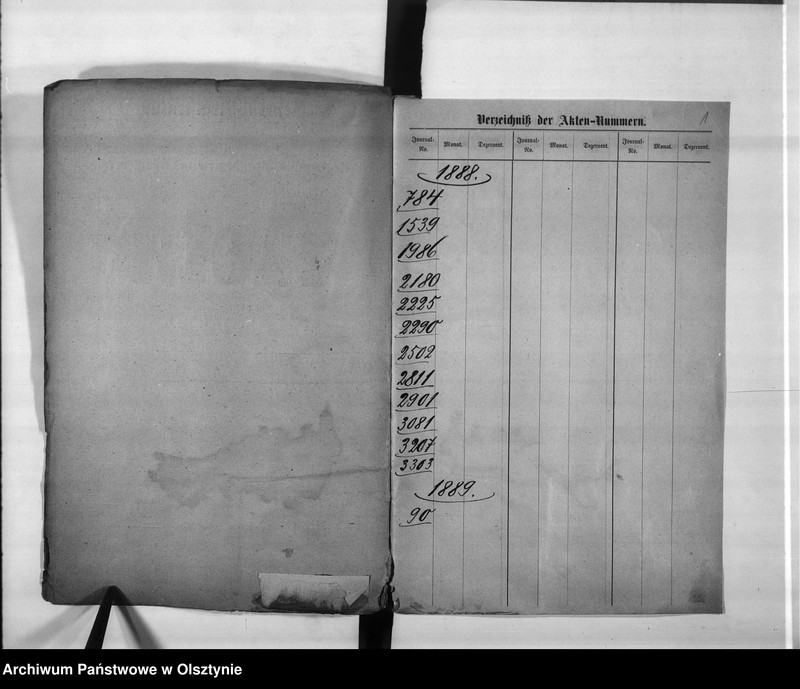 1
Verzeichniß der Akten-Nummern.
Journal-No. Monat. Dezernent. Journal-No. Monat. Dezernent. Journal-No. Monat. Dezernent.
1888.
784
1539
1986
2180
2225
2290
2502
2811
2901
3081
3207
3303
1889.
90
Archiwum Państwowe w Olsztynie